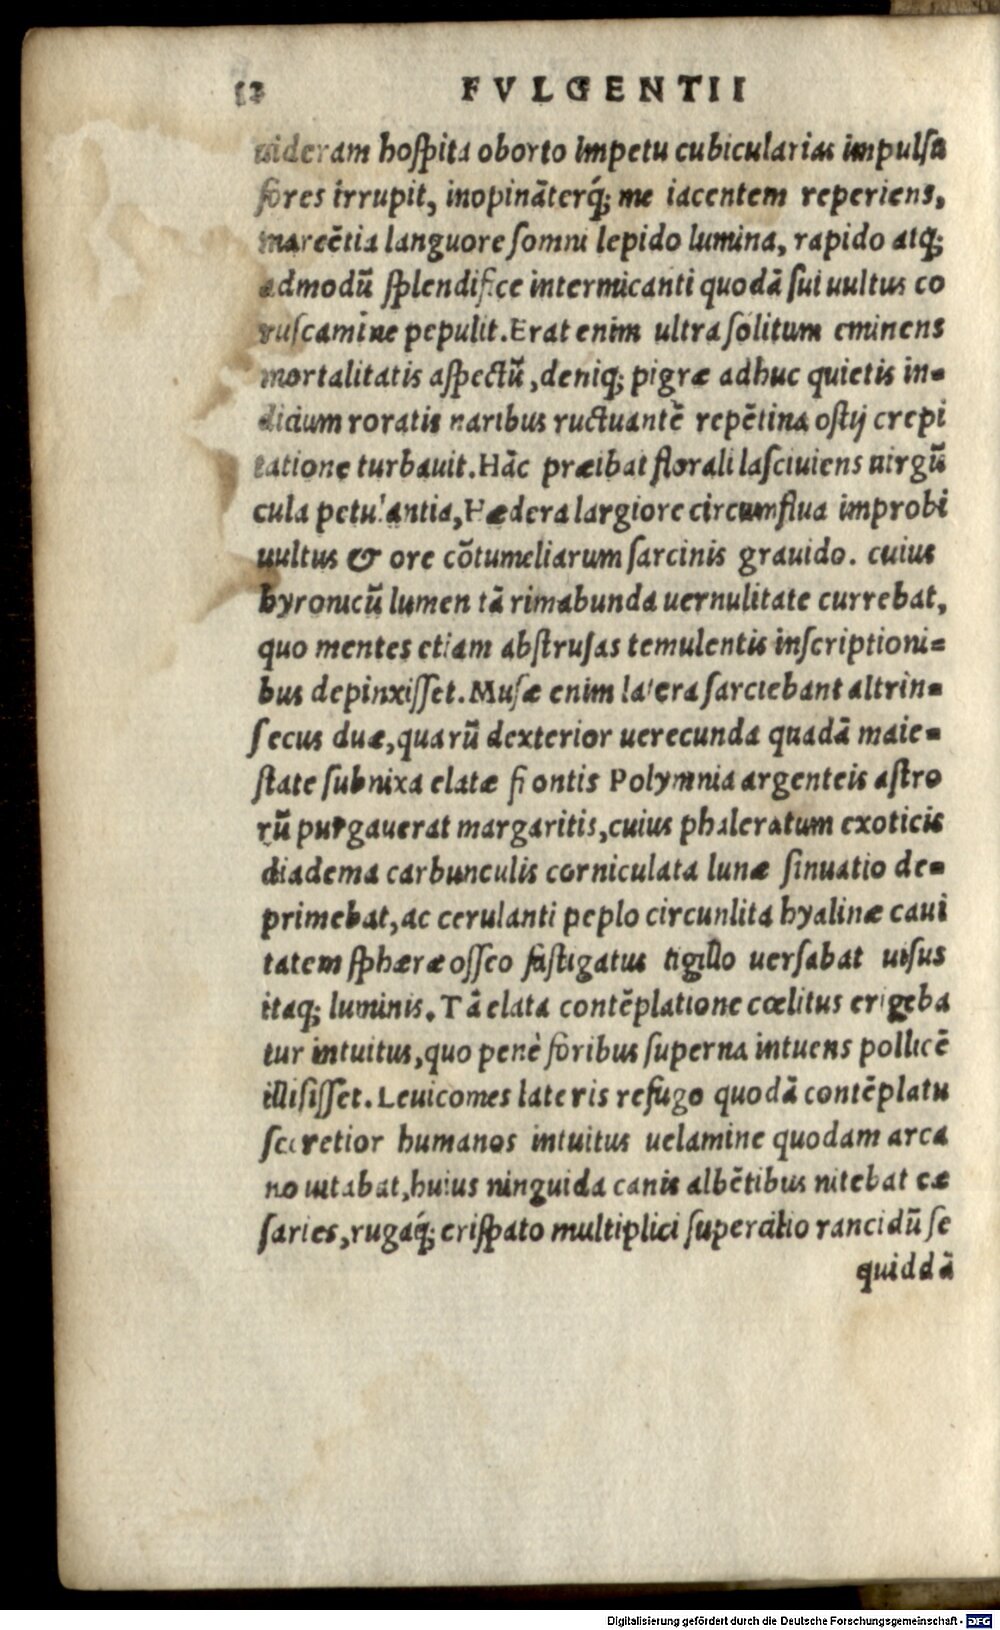 12 FVLGENTII
uideram hoſpita oborto impetu cubicularias impulſa
fores irrupit, inopinãterq́; me iacentem reperiens,
marcẽtia languore ſomni lepido lumina, rapido atq;
admodũ ſplendifice intermicanti quodã ſui uultus co
ruſcamine pepulit. Erat enim ultra ſolitum eminens
mortalitatis aſpectũ, deniq; pigræ adhuc quietis in-
dicium roratis naribus ructuantẽ repẽtina oſtij crepi
tatione turbauit. Hãc præibat florali laſciuiens uirgũ
cula petulantia, Hædera largiore circumflua improbi
uultus & ore cõtumeliarum ſarcinis grauido. cuius
hyronicũ lumen tã rimabunda uernulitate currebat,
quo mentes etiam abſtruſas temulentis inſcriptioni-
bus depinxiſſet. Muſæ enim latera ſarciebant altrin-
ſecus duæ, quarũ dexterior uerecunda quadã maie-
ſtate ſubnixa elatæ frontis Polymnia argenteis aſtro
rũ purgauerat margaritis, cuius phaleratum exoticis
diadema carbunculis corniculata lunæ ſinuatio de-
primebat, ac cerulanti peplo circunlita hyalinæ caui
tatem ſphæræ oſſeo faſtigatus tigillo uerſabat uiſus
itaq; luminis. Tã elata contẽplatione cœlitus erigeba
tur intuitus, quo penè foribus ſuperna intuens pollicẽ
illiſiſſet. Leuicomes lateris refugo quodã contẽplatu
ſecretior humanos intuitus uelamine quodam arca
no uitabat, huius ninguida canis albẽtibus nitebat cæ
ſaries, rugaq́; criſpato multiplici ſupercilio rancidũ ſe
quiddã
Digitalisierung gefördert durch die Deutsche Forschungsgemeinschaft - DFG